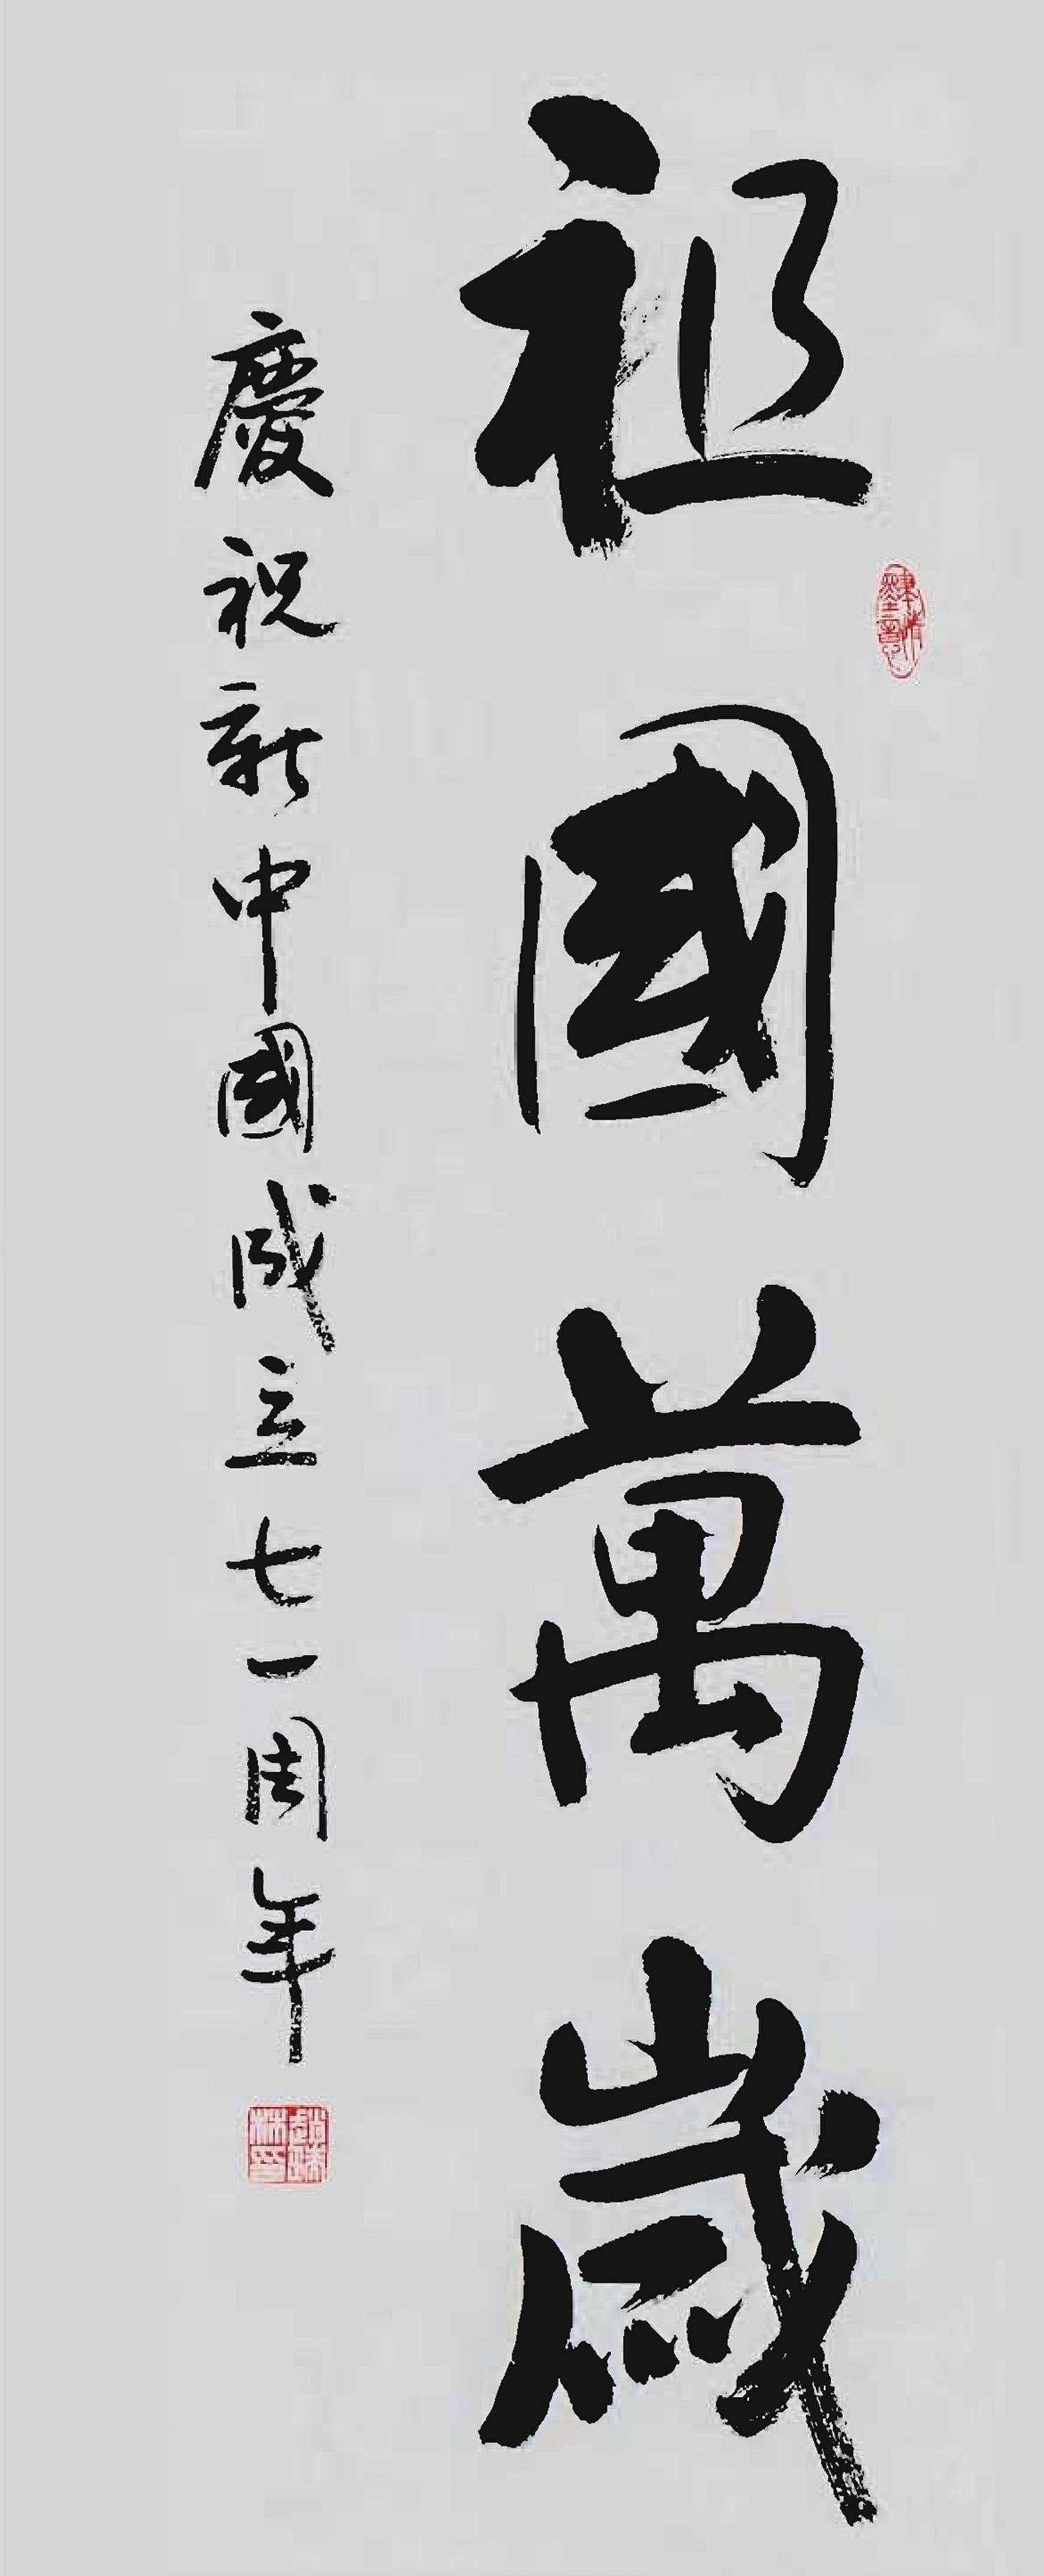 祖國萬歲
慶祝新中國成立七一周年